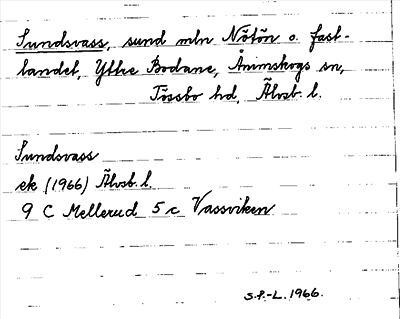 Sundsvass, sund mln Nötön o. fast-
landet, Yttre Bodane, Ånimskogs sn,
Tössbo hd, Älvsb. l.
Sundsvass
ek (1966) Älvsb. l.
9 C Mellerud 5 c Vassviken
S.P.-L. 1966.